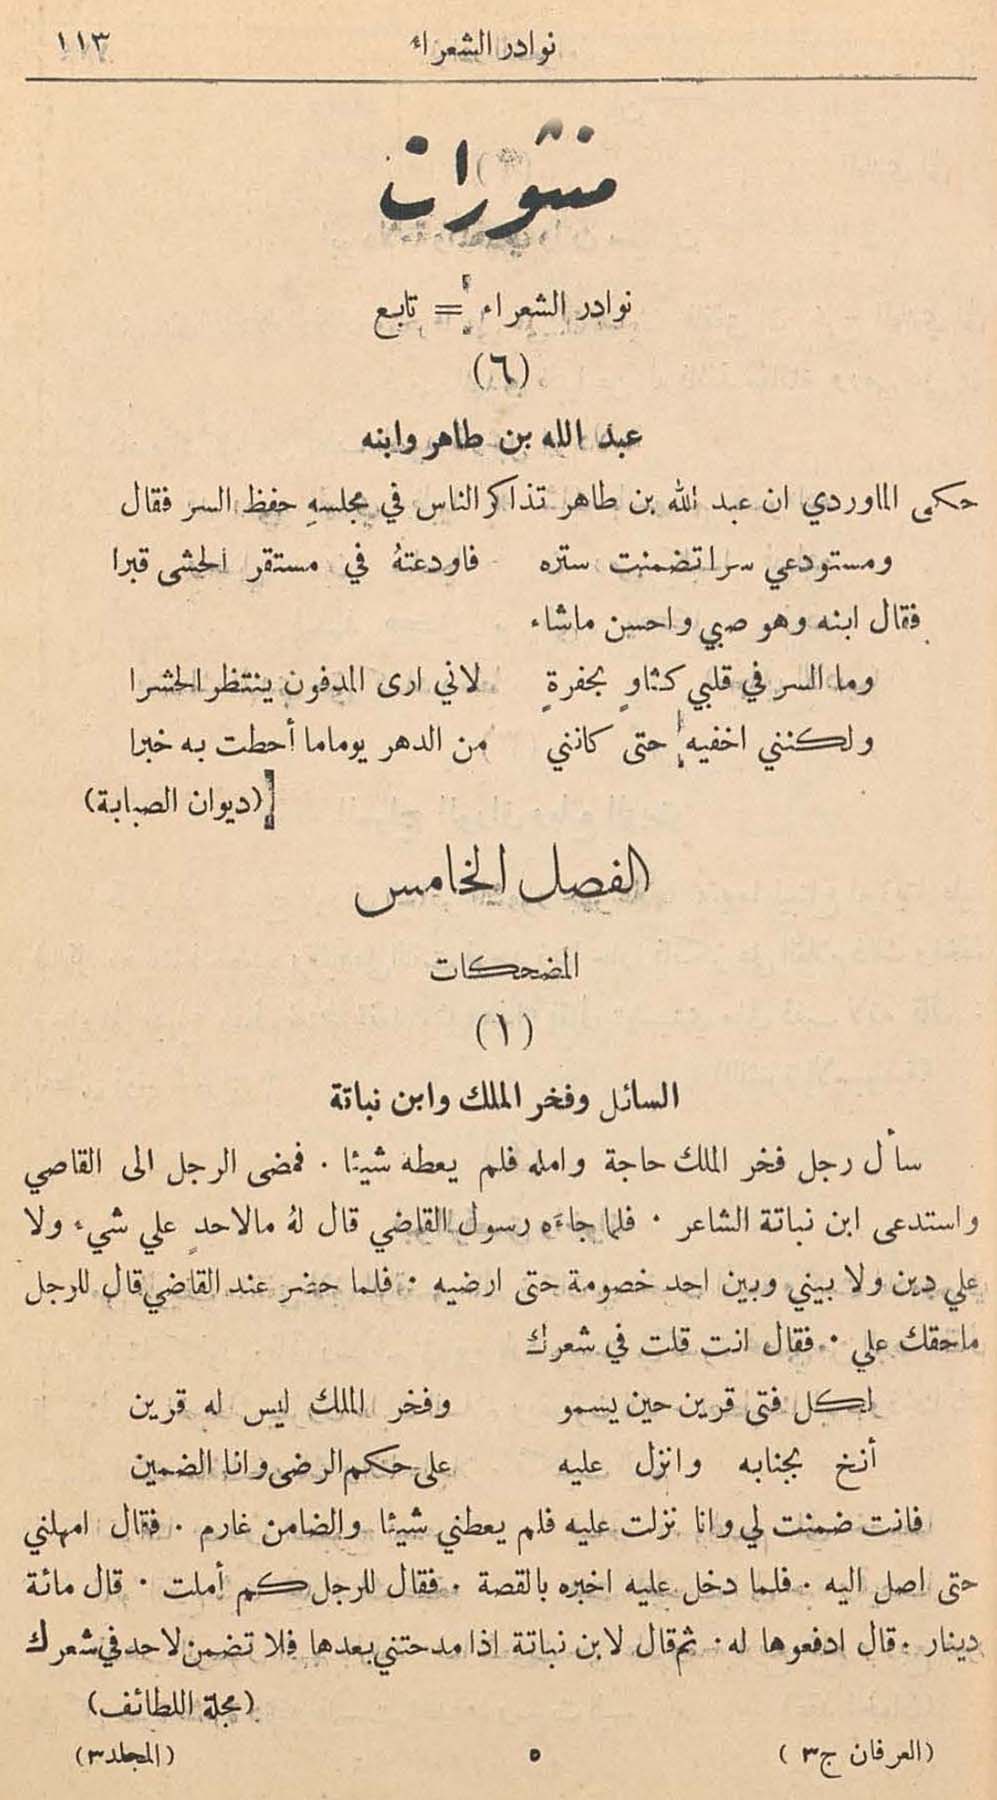 نوادر الشعراء ١١٣
منثورات
نوادر الشعراء = تابع
(٦)
عبد الله بن طاهر وابنه
حكى الماوردي ان عبد الله بن طاهر تذاكر الناس في مجلسهِ حفظ السر فقال
ومستودعي سرا تضمنت ستره فاودعتهُ في مستقر الحشى قبرا
فقال ابنه وهو صبي واحسن ماشاء
وما السر في قلبي كثاوٍ بحفرةٍ لاني ارى المدفون ينتظر الحشرا
ولكنني اخفيه حتى كانني من الدهر يوماما أحطت به خبرا
(ديوان الصبابة)
الفصل الخامس
المضحكات
(١)
السائل وفخر الملك وابن نباتة
سأل رجل فخر الملك حاجة وامله فلم يعطه شيئا ٠ فمضى الرجل الى القاصي
واستدعى ابن نباتة الشاعر ٠ فلما جاءَه رسول القاضي قال لهُ مالاحدٍ علي شيء ولا
علي دين ولا بيني وبين احد خصومة حتى ارضيه ٠ فلما حضر عند القاضي قال للرجل
ماحقك علي ٠ فقال انت قلت في شعرك
لكل فتى قرين حين يسمو وفخر الملك ليس له قرين
أنخ بجنابه وانزل عليه على حكم الرضى وانا الضمين
فانت ضمنت لي وانا نزلت عليه فلم يعطني شيئا والضامن غارم ٠ فقال امهلني
حتى اصل اليه ٠ فلما دخل عليه اخبره بالقصة ٠ فقال للرجل كم أملت ٠ قال مائة
دينار ٠ قال ادفعوها له ٠ ثم قال لابن نباتة اذا مدحتني بعدها فلا تضمن لاحد في شعرك
(مجلة اللطائف)
(العرفان ج٣) ٥ (المجلد٣)